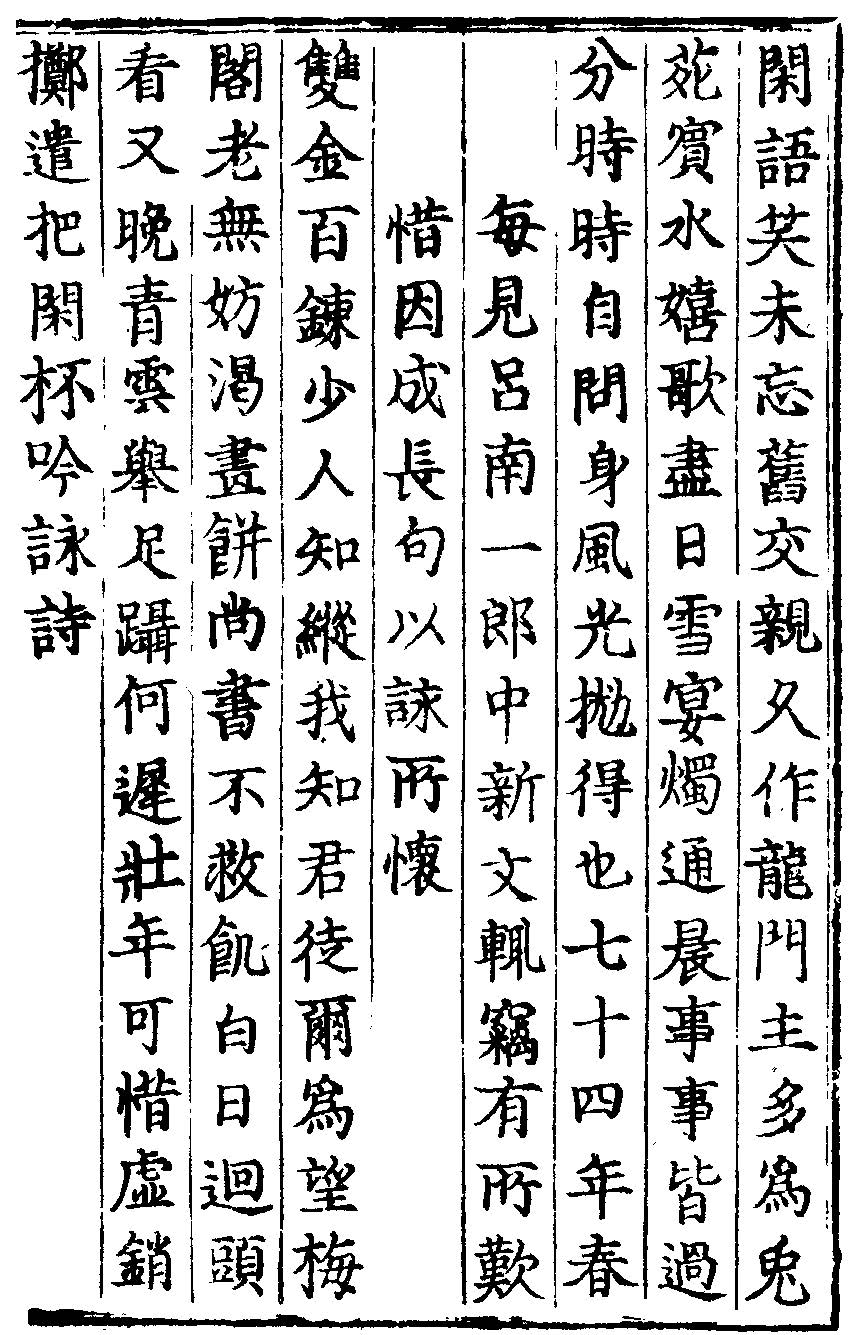 閑語笑未忘舊交親久作龍門主多爲兔
苑賓水嬉歌盡日雪宴燭通晨事事皆過
分時時自問身風光抛得也七十四年春
每見呂南一郎中新文輒竊有所歎
惜因成長句以詠所懷
雙金百鍊少人知縱我知君徒爾爲望梅
閣老無妨渴畫餅尚書不救飢白日迴頭
看又晚青雲舉足躡何遲壯年可惜虛銷
擲遣把閑杯吟詠詩